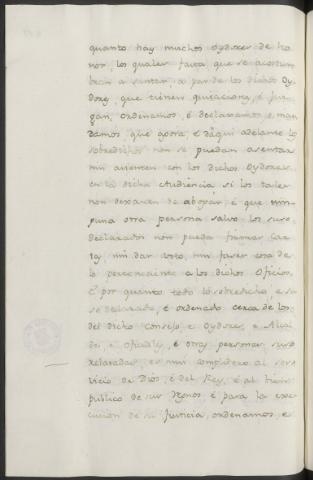 quanto hay muchos Oydores de ho
nor, los quales fasta, que se acostum
bran a sentar, a par de los dichos Oy
dores, que tienen quitacion, é juz
gan, ordenamos, é declaramos, e man
damos, que agora, é daqui adelante los
sobredichos non se puedan asentar
nin asienten con los dichos Oydores
en la dicha Audiencia, si los tales
non dexaren de abogar, é que nin
guna otra persona salvo los suso
declarados non pueda firmar Car
ta, nin dar voto, nin facer cosa de
lo perteneciente a los dichos Oficios.
E por quanto todo lo sobredicho, e su
so declarado, é ordenado cerca de los
del dicho Consejo, e Oydores, e Alcal
des, e Oficiales, é otras personas suso
declaradas, es mui complidero al ser
vicio de Dios, é del Rey, é al bien
publico de sus Regnos, é para la exe
cucion de su Justicia, ordenamos, e